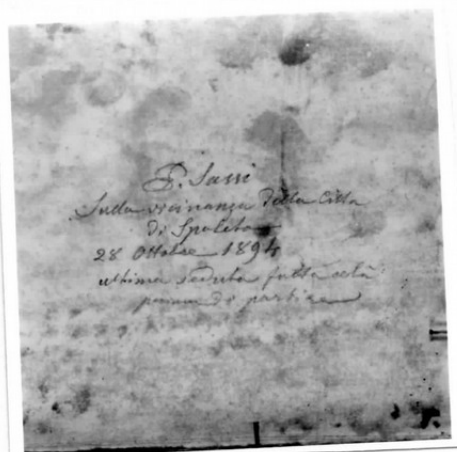 P. Sassi
Sulla vicinanza della Città
di Spoleto
28 Ottobre 1894
ultima seduta fatta colà
prima di partire